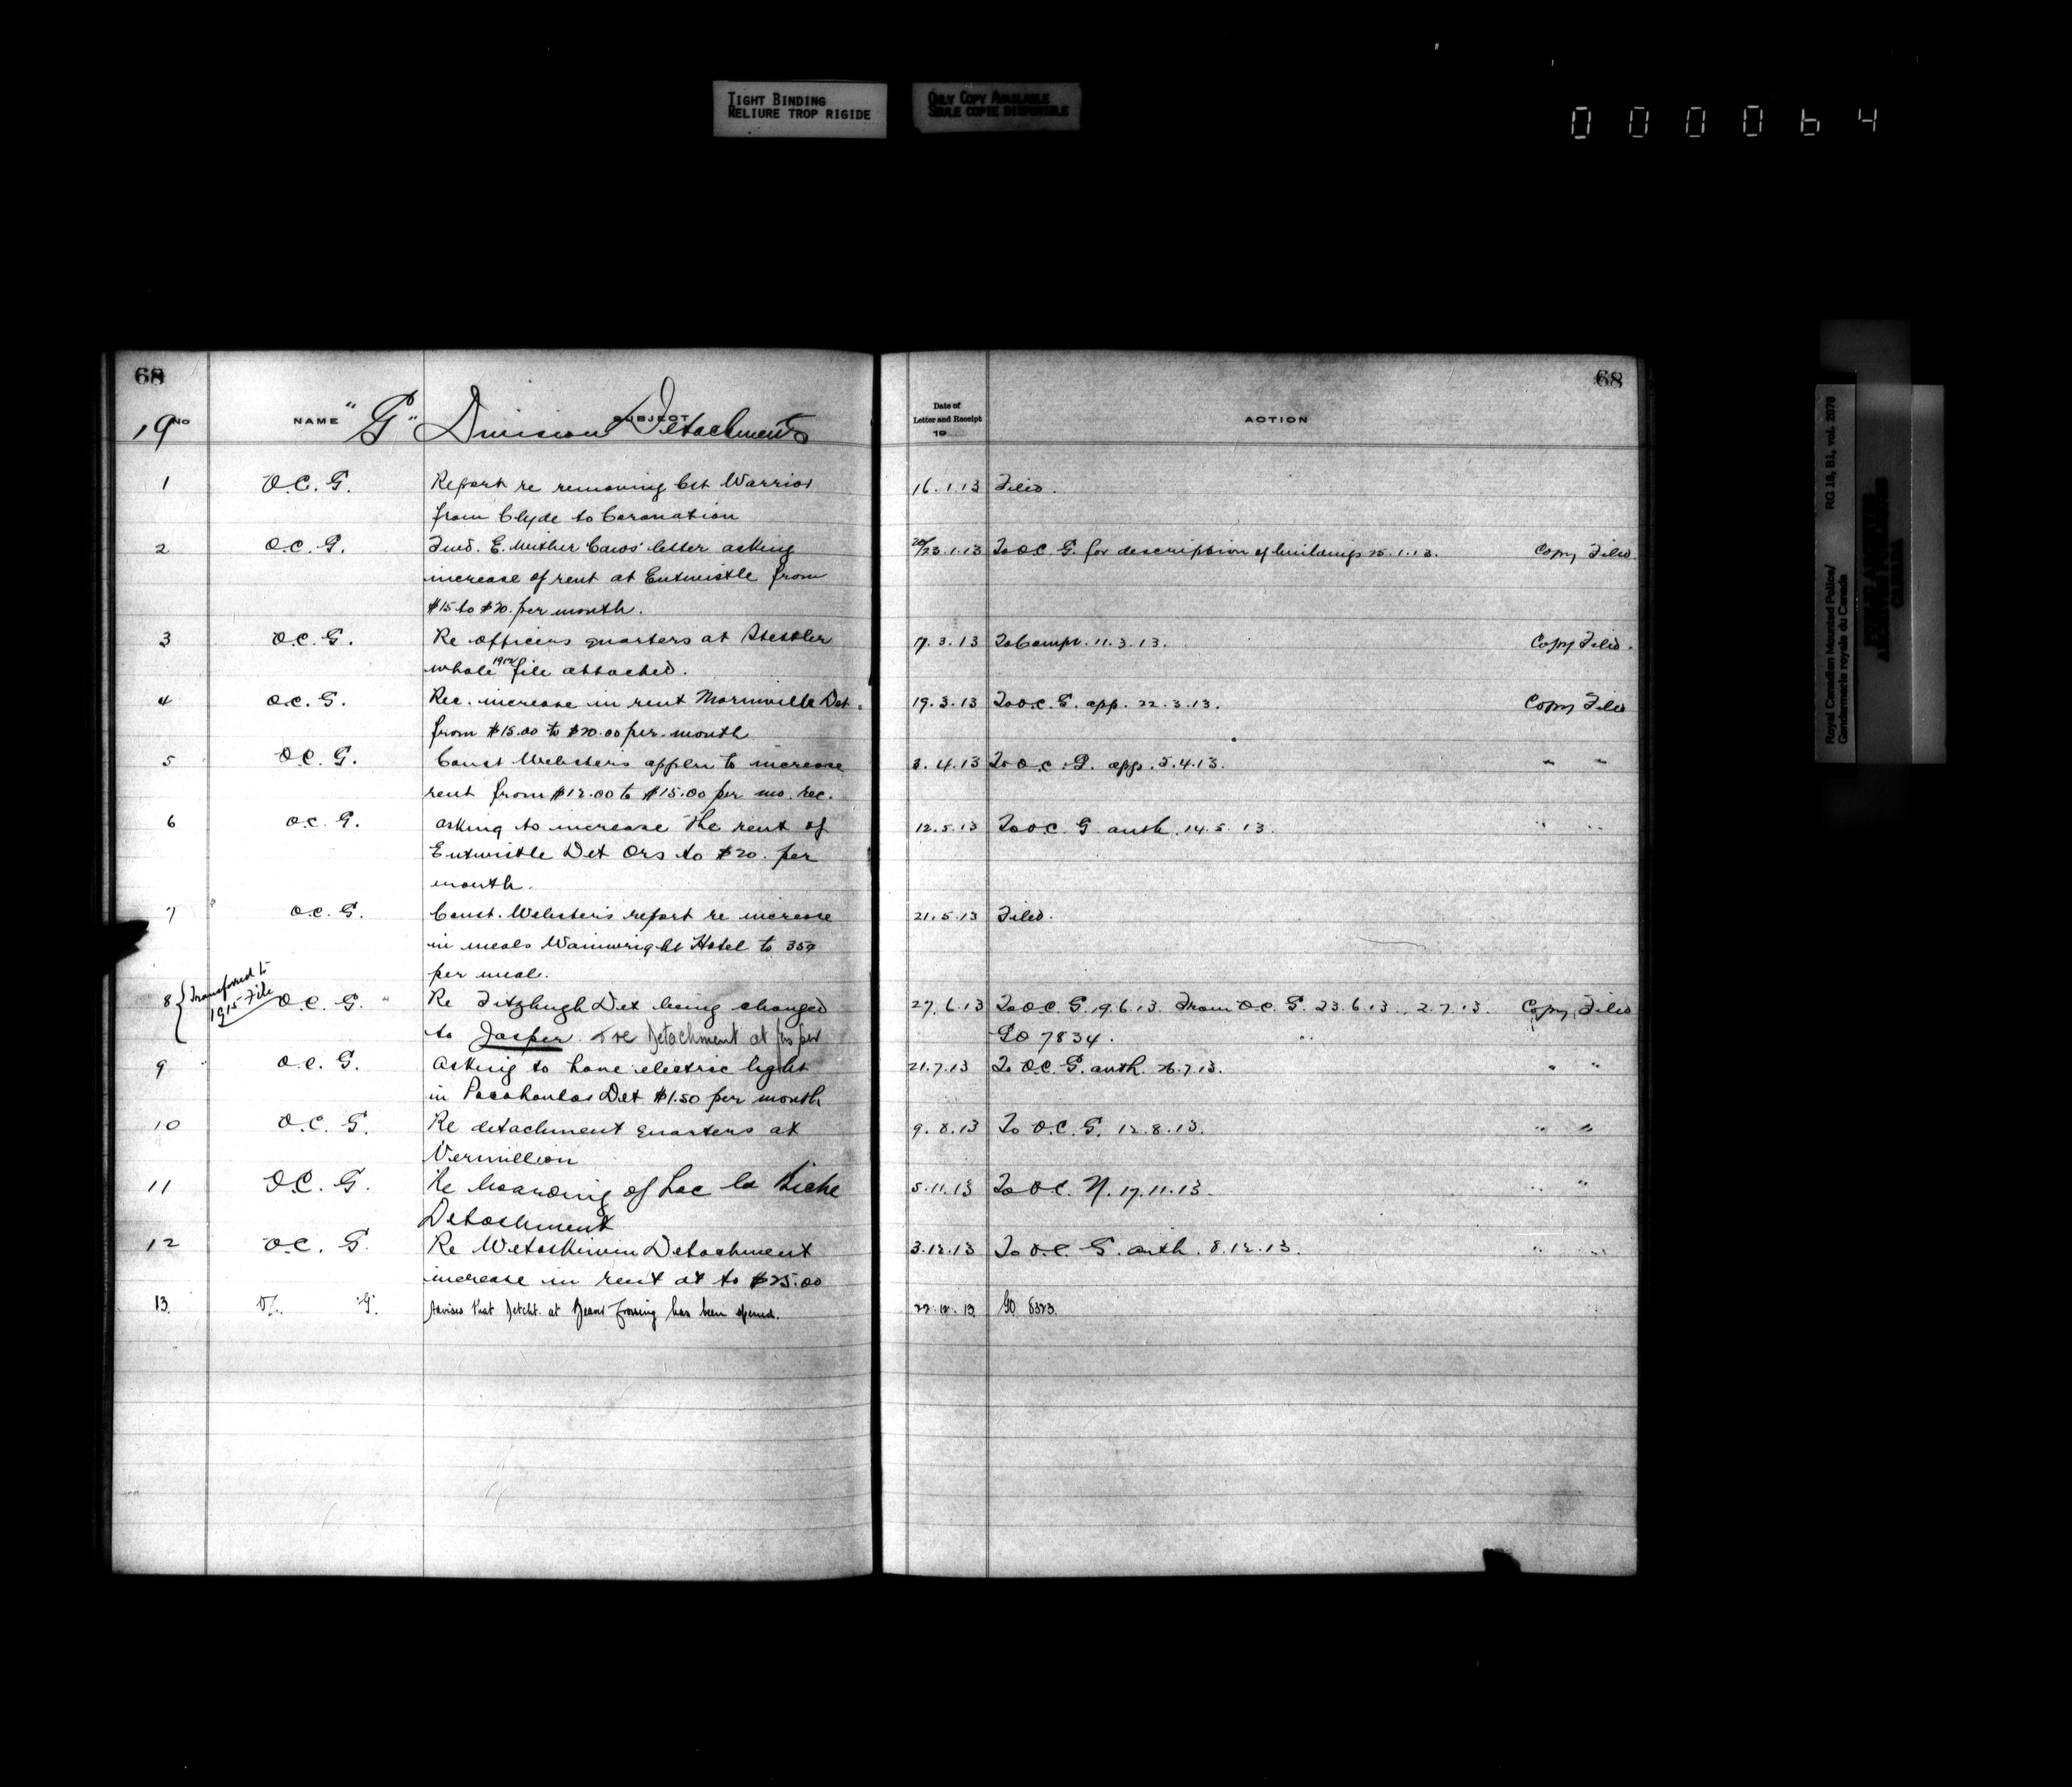 TIGHT BINDING
RELIURE TROP RIGIDE
ONLY COPY AVAILABLE
SEULE COPIE DISPONIBLE
000064
68
68
19 No NAME "G" Division Detachments SUBJECT
Date of
Letter and Receipt
19
ACTION
1 O.C. G. Report re removing Cst Warrior 16.1.13 Filed.
from Clyde to Coronation
2 O.C. G. Fwd. E. letter asking 20/23.1.13 To O.C. G. for description of buildings 25.1.13. Copy Filed
increase of rent at Entwistle from
$15 to $20. per month.
3 O.C. G. Re officers quarters at Stettler 7.3.13 To Compt. 11.3.13. Copy Filed.
whole 1912 file attached.
4 O.C. G. Rec. increase in rent Morinville Det. 19.3.13 To O.C. G. app. 22.3.13. Copy Filed
from $15.00 to $20.00 per month
5 O.C. G. Const Webster's applcn to increase 3.4.13 To O.C. G. app. 5.4.13. " "
rent from $12.00 to $15.00 per mo. rec.
6 O.C. G. asking to increase the rent of 12.5.13 To O.C. G. auth. 14.5.13. " "
Entwistle Det Qrs to $20. per
month.
7 O.C. G. Const. Webster's report re increase 21.5.13 Filed.
in meals Wainwright Hotel to 35¢
per meal.
8 { Transferred to
1915 File
O.C. G. " Re Fitzhugh Det being changed 27.6.13 To O.C. G. 19.6.13. From O.C. G. 23.6.13. 2.7.13. Copy Filed
to Jasper. & re Detachment at Jasper GO 7834. "
9 O.C. G. Asking to have electric light 21.7.13 To O.C. G. auth. 26.7.13. " "
in Pocahontas Det $1.50 per month
10 O.C. G. Re detachment quarters at 9.8.13 To O.C. G. 12.8.13. " "
Vermillion
11 O.C. G. Re boarding of Lac la Biche 5.11.13 To O.C. N. 17.11.13. " "
Detachment
12 O.C. G. Re Wetaskiwin Detachment 3.12.13 To O.C. G. auth. 8.12.13. " "
increase in rent at to $25.00
13. "G". Advises that Detcht. at Beaver Crossing has been opened. 22.12.13 GO 8323.
Royal Canadian Mounted Police/
Gendarmerie royale du Canada
RG 18, B1, vol. 2078
PUBLIC ARCHIVES
ARCHIVES PUBLIQUES
CANADA